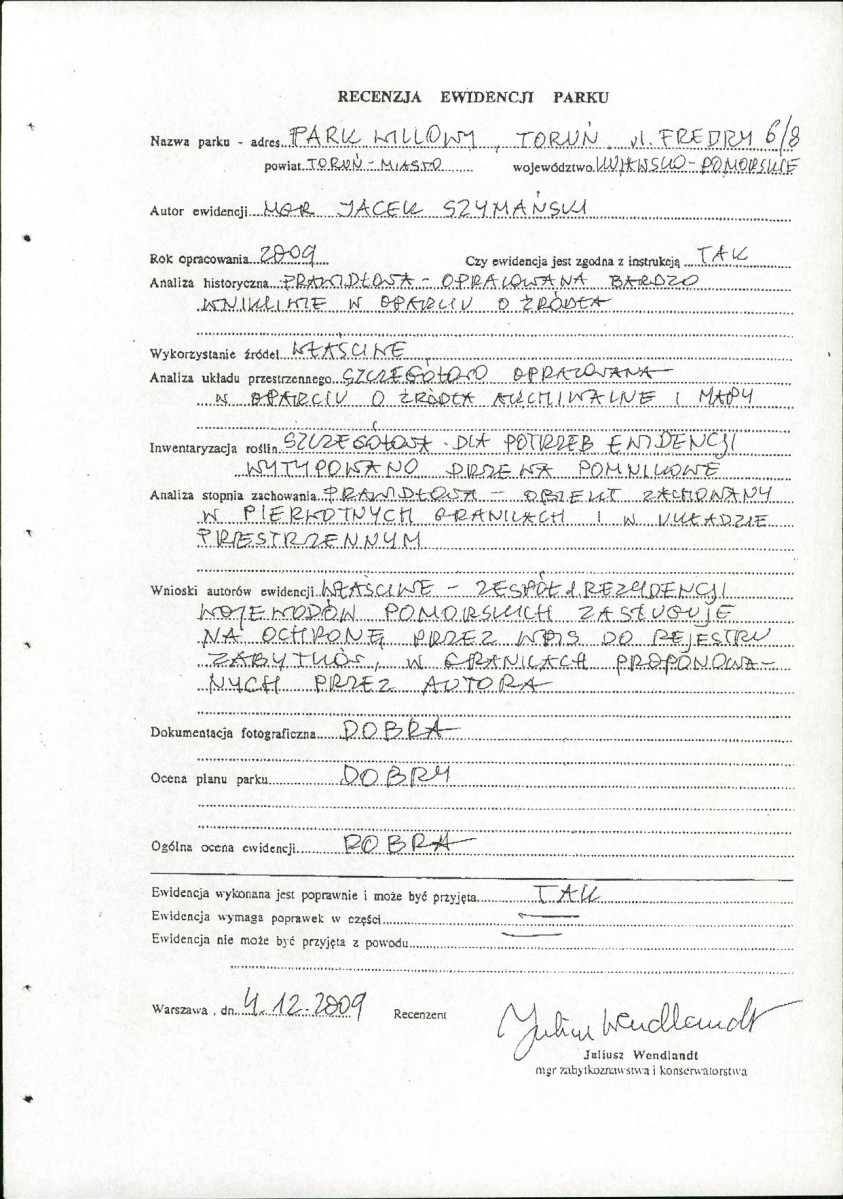 RECENZJA EWIDENCJI PARKU
Nazwa parku - adres PARK WILLOWY, TORUŃ, ul. FREDRY 6/8
powiat TORUŃ-MIASTO województwo KUJAWSKO-POMORSKIE
Autor ewidencji MGR JACEK SZYMAŃSKI
Rok opracowania 2009 Czy ewidencja jest zgodna z instrukcją TAK
Analiza historyczna PRAWIDŁOWA - OPRACOWANA BARDZO
WNIKLIWIE W OPARCIU O ŹRÓDŁA
Wykorzystanie źródeł WŁAŚCIWE
Analiza układu przestrzennego SZCZEGÓŁOWO OPRACOWANA
W OPARCIU O ŹRÓDŁA ARCHIWALNE I MAPY
Inwentaryzacja roślin SZCZEGÓŁOWA. DLA POTRZEB EWIDENCJI
WYTYPOWANO DRZEWA POMNIKOWE
Analiza stopnia zachowania PRAWIDŁOWA - OBIEKT ZACHOWANY
W PIERWOTNYCH GRANICACH I W UKŁADZIE
PRZESTRZENNYM
Wnioski autorów ewidencji WŁAŚCIWE - ZESPÓŁ d. REZYDENCJI
WOJEWODÓW POMORSKICH ZASŁUGUJE
NA OCHRONĘ PRZEZ WPIS DO REJESTRU
ZABYTKÓW, W GRANICACH PROPONOWA-
NYCH PRZEZ AUTORA
Dokumentacja fotograficzna DOBRA
Ocena planu parku DOBRY
Ogólna ocena ewidencji DOBRA
Ewidencja wykonana jest poprawnie i może być przyjęta TAK
Ewidencja wymaga poprawek w części —
Ewidencja nie może być przyjęta z powodu —
Warszawa, dn. 4.12.2009 Recenzent Juliusz Wendlandt
Juliusz Wendlandt
mgr zabytkoznawstwa i konserwatorstwa